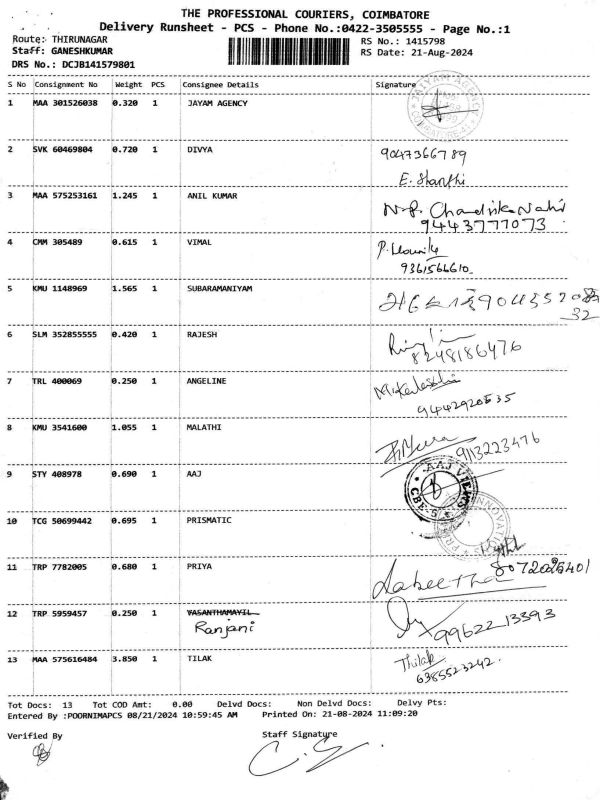 THE PROFESSIONAL COURIERS, COIMBATORE
Delivery Runsheet - PCS - Phone No.:0422-3505555 - Page No.:1
Route: THIRUNAGAR
Staff: GANESHKUMAR
DRS No.: DCJB141579801
RS No.: 1415798
RS Date: 21-Aug-2024
S No Consignment No Weight PCS Consignee Details Signature
1 MAA 301526038 0.320 1 JAYAM AGENCY
2 SVK 60469804 0.720 1 DIVYA 9047366789
E. Shanthi
3 MAA 575253161 1.245 1 ANIL KUMAR
9443777073
4 CMM 305489 0.615 1 VIMAL
9361566610
5 KMU 1148969 1.565 1 SUBARAMANIYAM
32
6 SLM 352855555 0.420 1 RAJESH
8248186476
7 TRL 400069 0.250 1 ANGELINE
8 KMU 3541600 1.055 1 MALATHI
9113223476
9 STY 408978 0.690 1 AAJ
10 TCG 50699442 0.695 1 PRISMATIC
11 TRP 7782005 0.680 1 PRIYA
12 TRP 5959457 0.250 1 VASANTHAMAYIL
Ranjani 99622 13393
13 MAA 575616484 3.850 1 TILAK Thilak
6385523242
Tot Docs: 13 Tot COD Amt: 0.00 Delvd Docs: Non Delvd Docs: Delvy Pts:
Entered By :POORNIMAPCS 08/21/2024 10:59:45 AM Printed On: 21-08-2024 11:09:20
Verified By Staff Signature